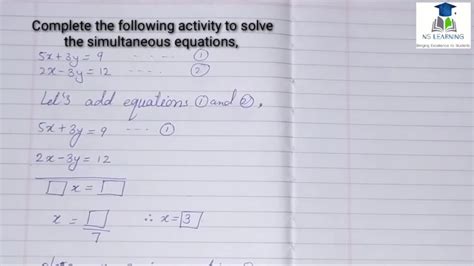 Complete the following activity to solve
the simultaneous equations,
NS LEARNING
5x + 3y = 9 ---- ①
2x - 3y = 12 ---- ②
Let's add equations ① and ②,
5x + 3y = 9 ---- ①
2x - 3y = 12
□ x = □
x = □/7 ∴ x = 3